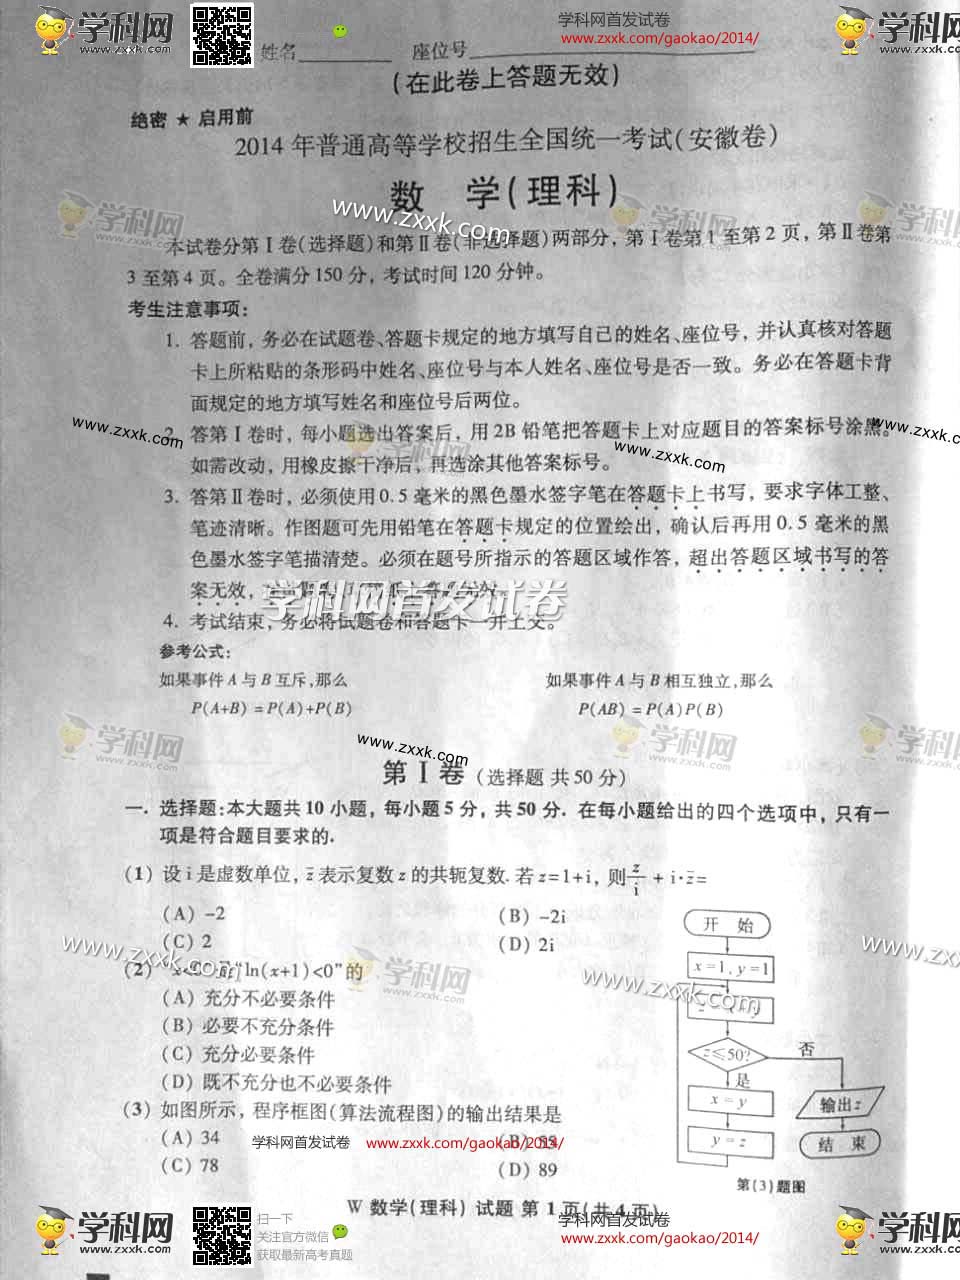 学科网
www.zxxk.com
学科网
www.zxxk.com
学科网首发试卷
www.zxxk.com/gaokao/2014/
学科网
www.zxxk.com
姓名 座位号
(在此卷上答题无效)
绝密 ★ 启用前
2014 年普通高等学校招生全国统一考试(安徽卷)
数 学(理科)
www.zxxk.com
学科网
学科网
学科网
本试卷分第Ⅰ卷(选择题)和第Ⅱ卷(非选择题)两部分，第Ⅰ卷第 1 至第 2 页，第Ⅱ卷第
3 至第 4 页。全卷满分 150 分，考试时间 120 分钟。
考生注意事项：
1. 答题前，务必在试题卷、答题卡规定的地方填写自己的姓名、座位号，并认真核对答题
卡上所粘贴的条形码中姓名、座位号与本人姓名、座位号是否一致。务必在答题卡背
面规定的地方填写姓名和座位号后两位。
www.zxxk.com
www.zxxk.com
www.zxxk.com
学科网
2. 答第Ⅰ卷时，每小题选出答案后，用 2B 铅笔把答题卡上对应题目的答案标号涂黑。
如需改动，用橡皮擦干净后，再选涂其他答案标号。
3. 答第Ⅱ卷时，必须使用 0.5 毫米的黑色墨水签字笔在答题卡上书写，要求字体工整、
笔迹清晰。作图题可先用铅笔在答题卡规定的位置绘出，确认后再用 0.5 毫米的黑
色墨水签字笔描清楚。必须在题号所指示的答题区域作答，超出答题区域书写的答
案无效，
学科网首发试卷
4. 考试结束，务必将试题卷和答题卡一并上交。
参考公式：
如果事件 A 与 B 互斥，那么 如果事件 A 与 B 相互独立，那么
P(A+B) =P(A)+P(B) P(AB) =P(A)P(B)
学科网
学科网
学科网
www.zxxk.com
第Ⅰ卷 (选择题 共 50 分)
一. 选择题：本大题共 10 小题，每小题 5 分，共 50 分. 在每小题给出的四个选项中，只有一
项是符合题目要求的.
(1) 设 i 是虚数单位，z̄ 表示复数 z 的共轭复数. 若 z=1+i，则 z/i + i·z̄=
(A) -2 (B) -2i
(C) 2 (D) 2i
www.zxxk.com
学科网
www.zxxk.com
www.zxxk.com
(2) “ln(x+1)<0”的
(A) 充分不必要条件
(B) 必要不充分条件
(C) 充分必要条件
(D) 既不充分也不必要条件
(3) 如图所示，程序框图(算法流程图)的输出结果是
(A) 34
(C) 78 (D) 89
学科网首发试卷 www.zxxk.com/gaokao/2014/
开 始
x=1, y=1
z≤50?
否
是
x=y
y=z
输出z
结 束
第(3)题图
W 数学(理科) 试题 第 1 页(共 4 页)
学科网
www.zxxk.com
扫一下
关注官方微信
获取最新高考真题
学科网
www.zxxk.com
学科网首发试卷
www.zxxk.com/gaokao/2014/
学科网
www.zxxk.com